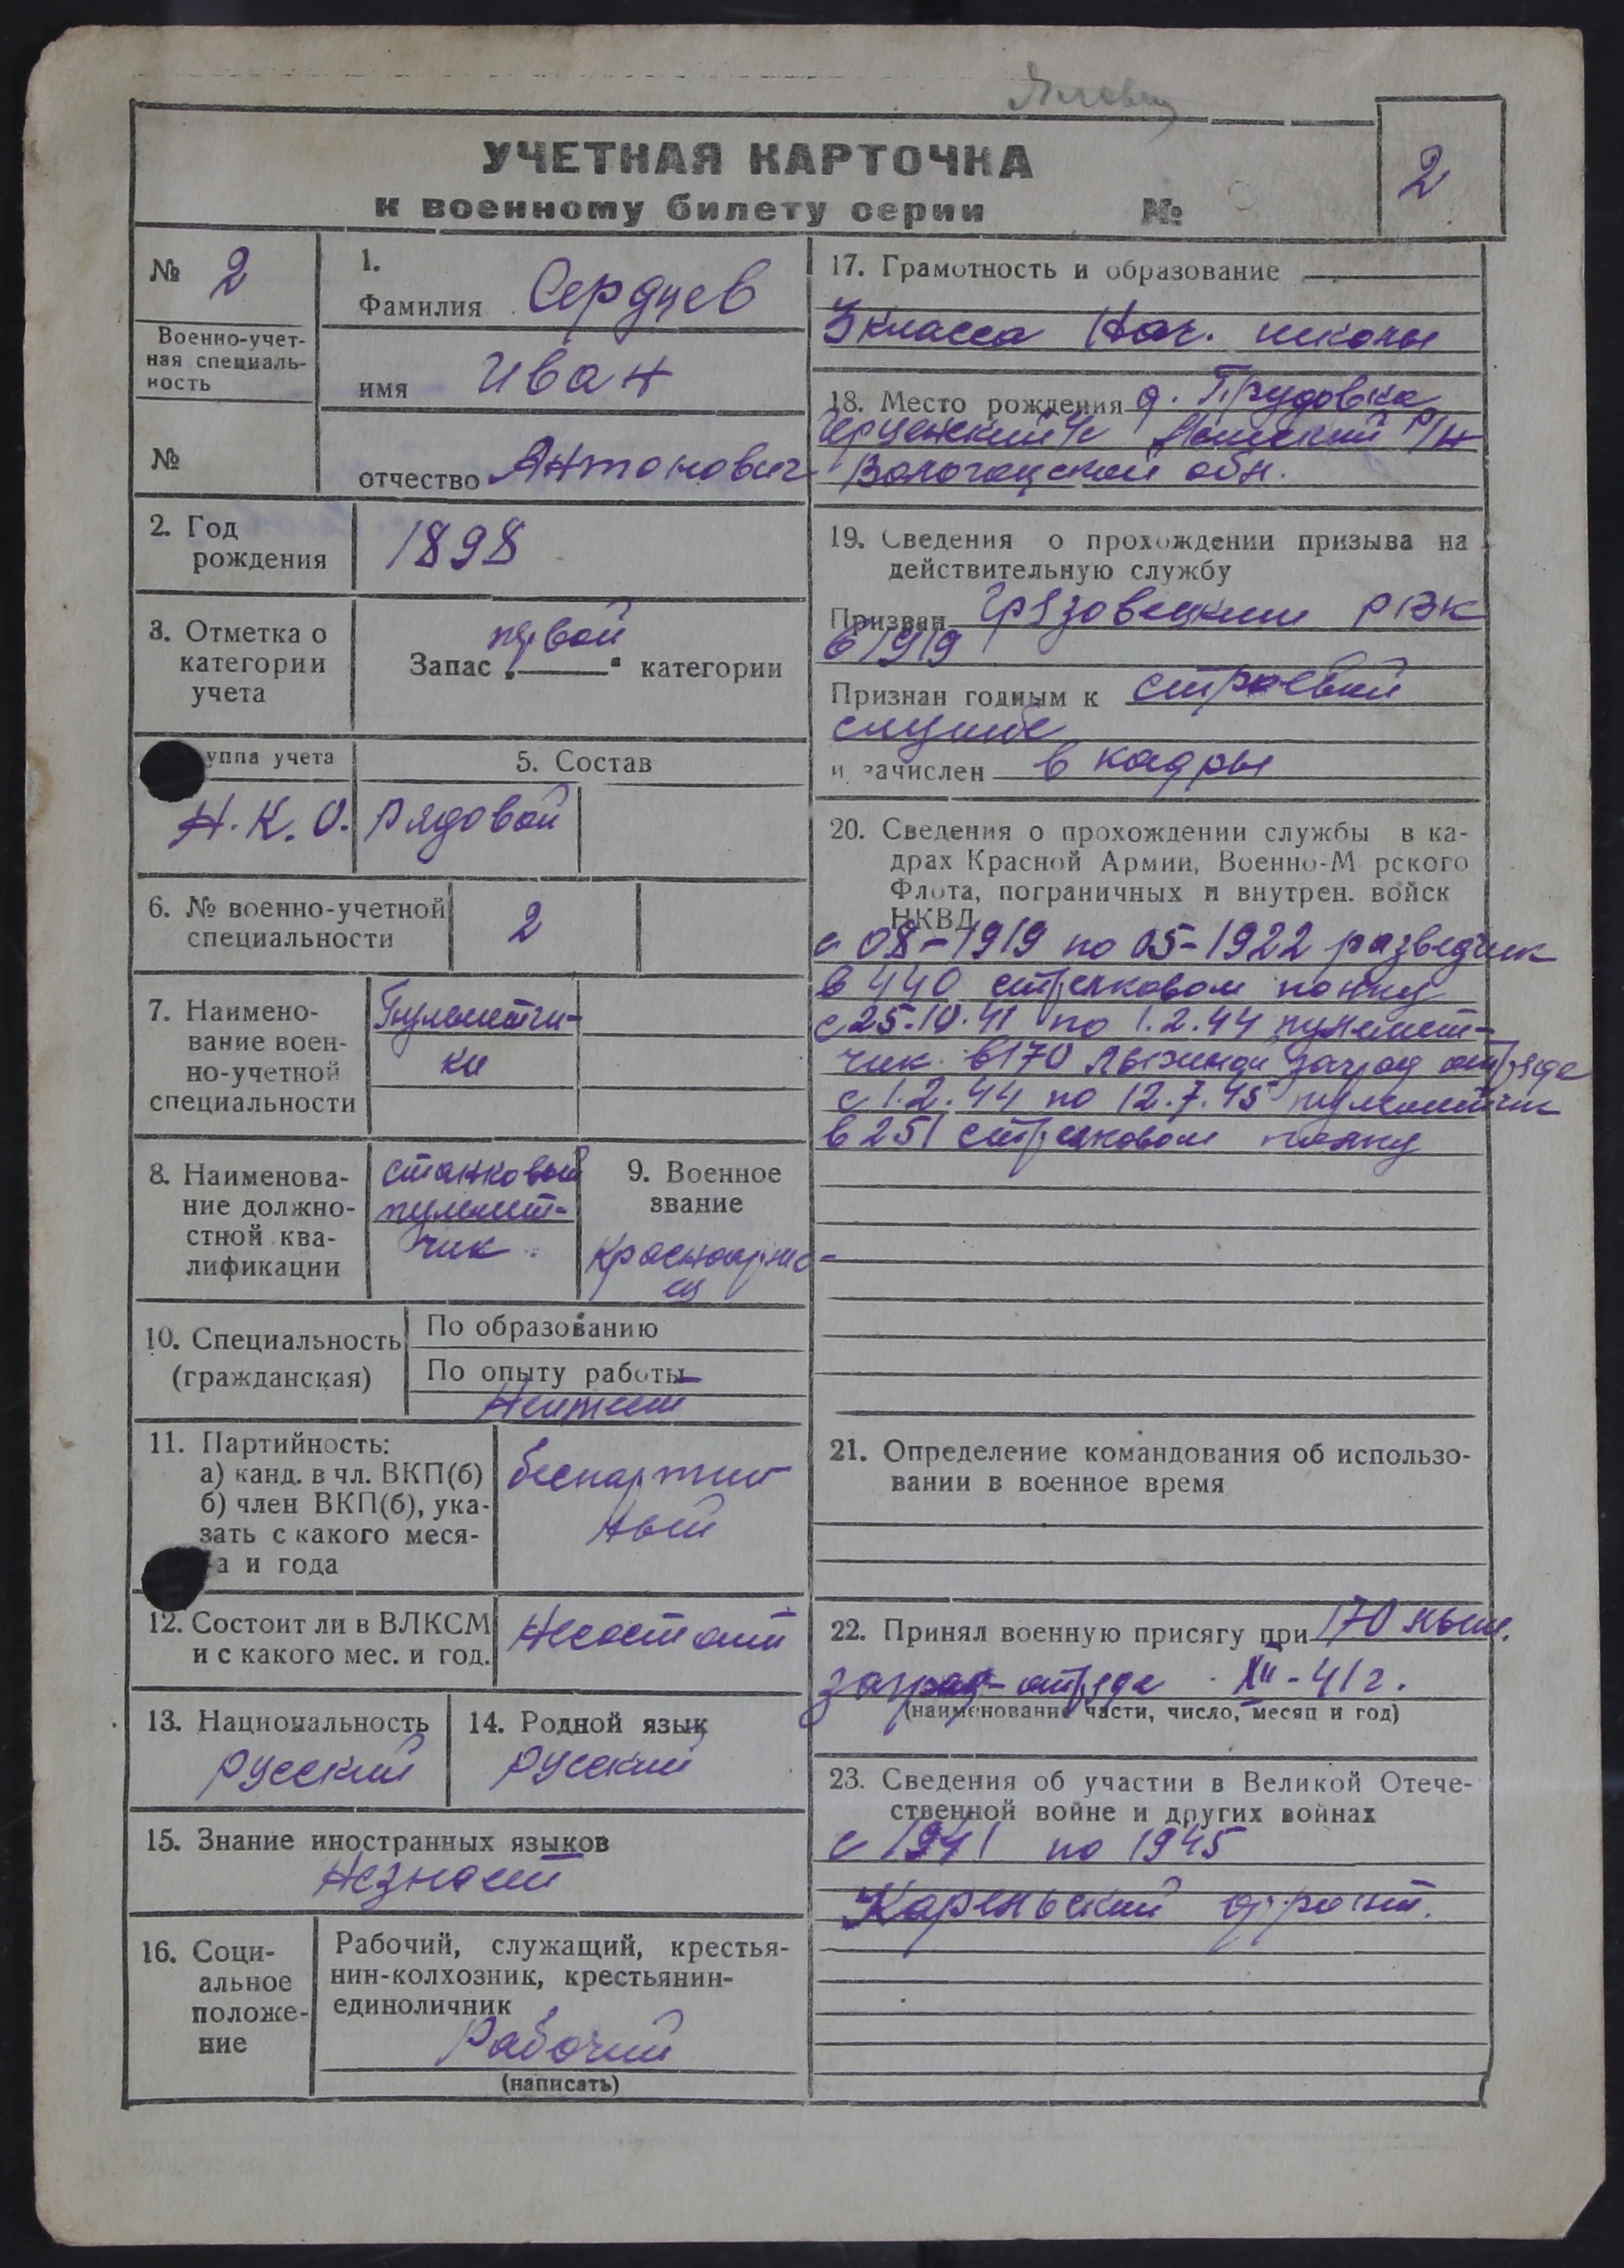 УЧЕТНАЯ КАРТОЧКА
к военному билету серии №
2
№ 2
Военно-учет-
ная специаль-
ность
№
1.
Фамилия Сердцев
имя Иван
отчество Антонович
2. Год
рождения
1898
3. Отметка о
категории
учета
Запас первой категории
уппа учета
Н.К.О.
5. Состав
Рядовой
6. № военно-учетной
специальности
2
7. Наимено-
вание воен-
но-учетной
специальности
Пулеметчи-
ки
8. Наименова-
ние должно-
стной ква-
лификации
станковый
пулемет-
чик
9. Военное
звание
Красноарме-
ец
10. Специальность
(гражданская)
По образованию
По опыту работы
Неимеет
11. Партийность:
а) канд. в чл. ВКП(б)
б) член ВКП(б), ука-
зать с какого меся-
а и года
беспартий
ный
12. Состоит ли в ВЛКСМ
и с какого мес. и год.
Несостоит
13. Национальность
русский
14. Родной язык
русский
15. Знание иностранных языков
Незнает
16. Соци-
альное
положе-
ние
Рабочий, служащий, крестья-
нин-колхозник, крестьянин-
единоличник
Рабочий
(написать)
17. Грамотность и образование
3 класса Нач. школы
18. Место рождения д. Прудовка
с/с р/н
Вологодской обл.
19. Сведения о прохождении призыва на
действительную службу
Призван Грязовецким РВК
в 1919
Признан годным к строевой
службе
и зачислен в кадры
20. Сведения о прохождении службы в ка-
драх Красной Армии, Военно-М рского
Флота, пограничных и внутрен. войск
НКВД
с 08-1919 по 05-1922 разведчик
в 440 стрелковом полку
с 25.10.41 по 1.2.44 пулемет-
чик в 170 лыжном заград отряде
с 1.2.44 по 12.7.45 пулеметчик
в 251 стрелковом полку
21. Определение командования об использо-
вании в военное время
22. Принял военную присягу при 170 лыж.
заград-отряде XII-41 г.
(наименование части, число, месяц и год)
23. Сведения об участии в Великой Отече-
ственной войне и других войнах
с 1941 по 1945
Карельский фронт.